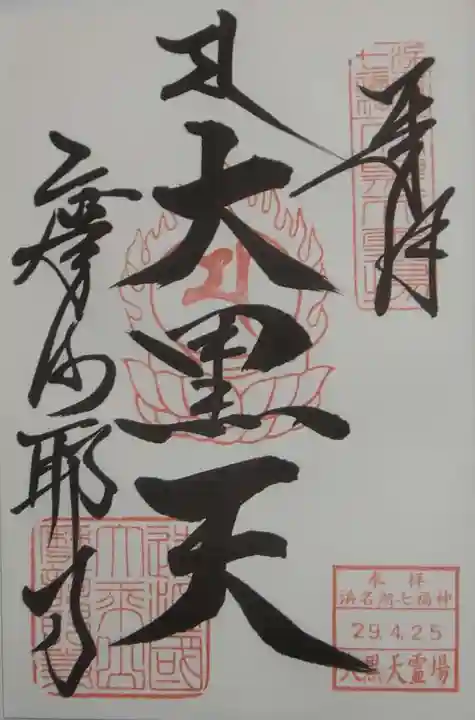 奉拝
大黒天
摩訶耶寺
奉拝
浜名湖七福神
29.4.25
大黒天霊場